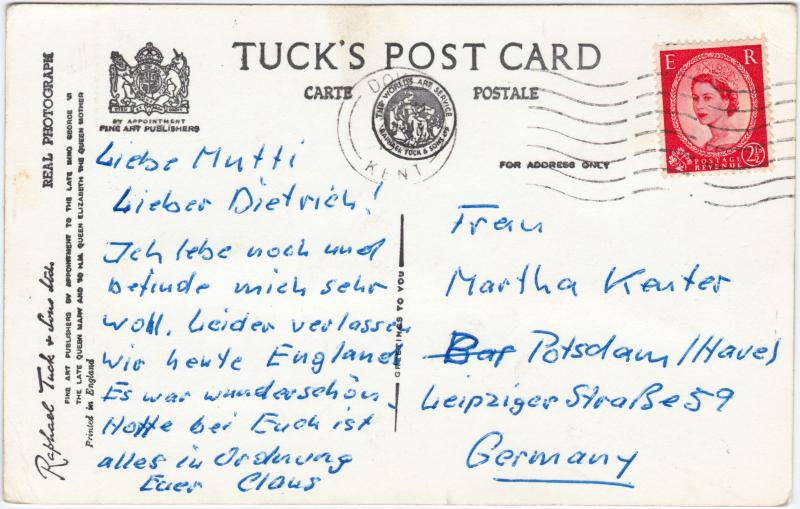 TUCK'S POST CARD
CARTE POSTALE
BY APPOINTMENT
FINE ART PUBLISHERS
FOR ADDRESS ONLY
E R
POSTAGE
REVENUE
2½
KENT
THE WORLD'S ART SERVICE
RAPHAEL TUCK & SONS LTD
REAL PHOTOGRAPH
Raphael Tuck & Sons Ltd.
FINE ART PUBLISHERS BY APPOINTMENT TO THE LATE KING GEORGE VI
THE LATE QUEEN MARY AND TO H.M. QUEEN ELIZABETH THE QUEEN MOTHER
Printed in England
Liebe Mutti
Lieber Dietrich!
Ich lebe noch und
befinde mich sehr
wohl. Leider verlassen
wir heute England
Es war wunderschön.
Hoffe bei Euch ist
alles in Ordnung
Euer Claus
GREETINGS TO YOU
Frau
Martha Kenter
Potsdam/Havel
Leipziger Straße 59
Germany